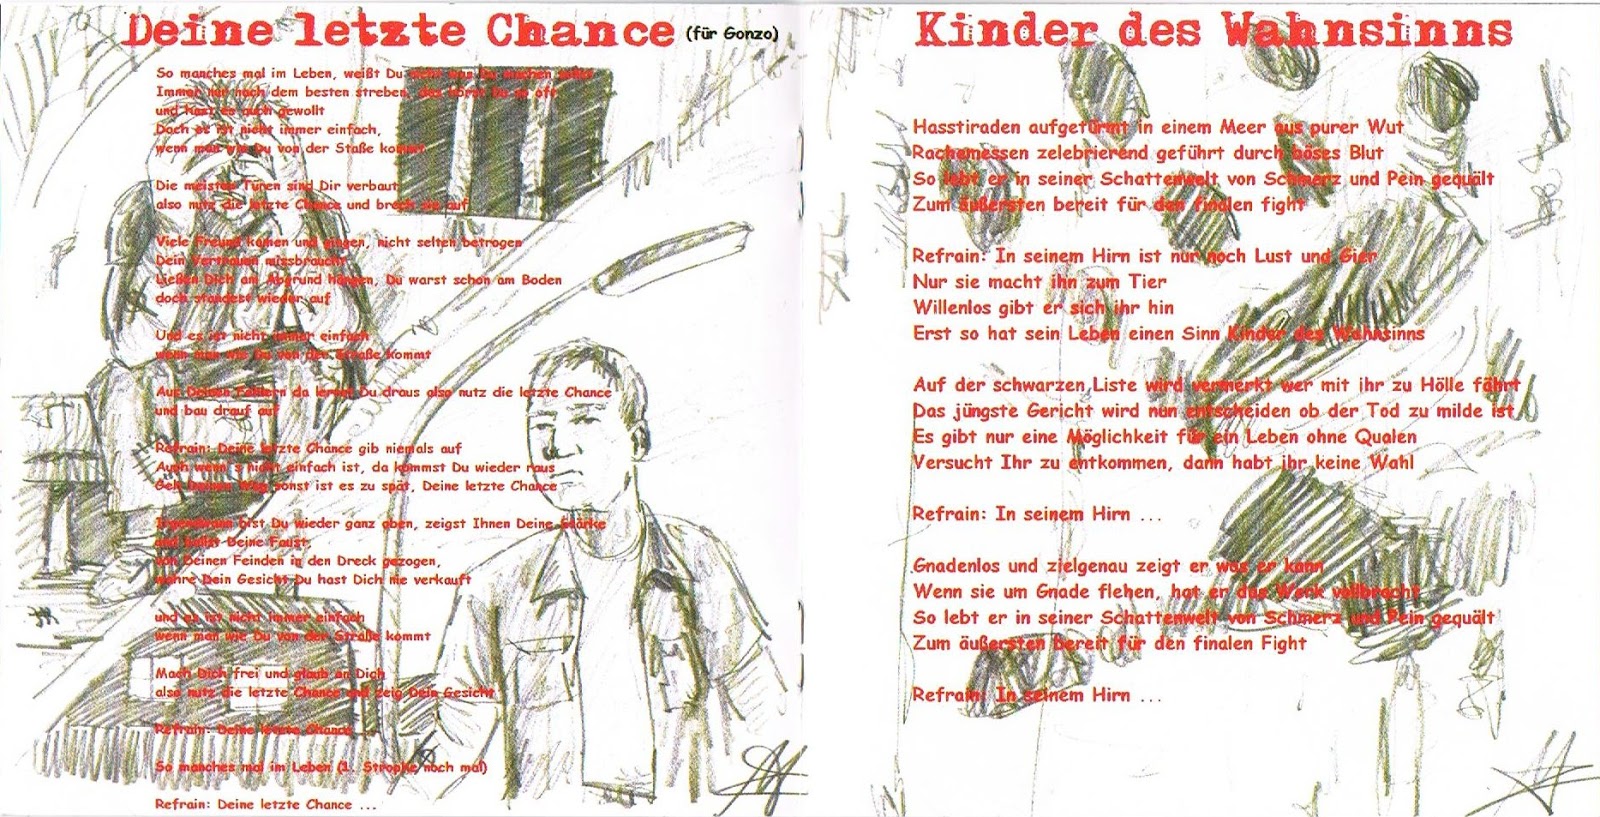 Deine letzte Chance (für Gonzo)
So manches mal im Leben, weißt Du nicht was Du machen sollst
Immer nur nach dem besten streben, das hörst Du so oft
und hast es auch gewollt
Doch es ist nicht immer einfach,
wenn man wie Du von der Staße kommt
Die meisten Türen sind Dir verbaut
also nutz die letzte Chance und brech sie auf
Viele Freund kamen und gingen, nicht selten betrogen
Dein Vertrauen missbraucht
Ließen Dich am Abgrund hängen, Du warst schon am Boden
doch standest wieder auf
Und es ist nicht immer einfach
wenn man wie Du von der Straße kommt
Aus Deinen Fehlern da lernst Du draus also nutz die letzte Chance
und bau drauf auf
Refrain: Deine letzte Chance gib niemals auf
Auch wenn's nicht einfach ist, da kommst Du wieder raus
Geh Deinen Weg sonst ist es zu spät, Deine letzte Chance
Irgendwann bist Du wieder ganz oben, zeigst Ihnen Deine Stärke
und ballst Deine Faust
von Deinen Feinden in den Dreck gezogen,
wahre Dein Gesicht Du hast Dich nie verkauft
und es ist nicht immer einfach
wenn man wie Du von der Straße kommt
Mach Dich frei und glaub an Dich
also nutz die letzte Chance und zeig Dein Gesicht
Refrain: Deine letzte Chance ...
So manches mal im Leben (1. Strophe noch mal)
Refrain: Deine letzte Chance ...
Kinder des Wahnsinns
Hasstiraden aufgetürmt in einem Meer aus purer Wut
Rachemessen zelebrierend geführt durch böses Blut
So lebt er in seiner Schattenwelt von Schmerz und Pein gequält
Zum äußersten bereit für den finalen fight
Refrain: In seinem Hirn ist nur noch Lust und Gier
Nur sie macht ihn zum Tier
Willenlos gibt er sich ihr hin
Erst so hat sein Leben einen Sinn Kinder des Wahnsinns
Auf der schwarzen Liste wird vermerkt wer mit ihr zu Hölle fährt
Das jüngste Gericht wird nun entscheiden ob der Tod zu milde ist
Es gibt nur eine Möglichkeit für ein Leben ohne Qualen
Versucht Ihr zu entkommen, dann habt ihr keine Wahl
Refrain: In seinem Hirn ...
Gnadenlos und zielgenau zeigt er was er kann
Wenn sie um Gnade flehen, hat er das Werk vollbracht
So lebt er in seiner Schattenwelt von Schmerz und Pein gequält
Zum äußersten bereit für den finalen Fight
Refrain: In seinem Hirn ...